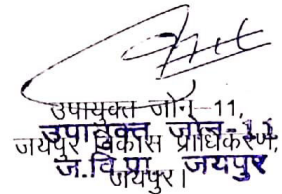 उपायुक्त जोन-11,
उपायुक्त जोन-11
जयपुर विकास प्राधिकरण,
ज.वि.प्रा. जयपुर
जयपुर।